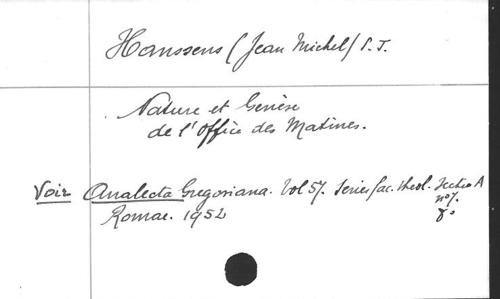 Hanssens (Jean Michel) S. J.
Nature et Genèse
de l'Office des Matines.
Voir Analecta Gregoriana. Vol 57. Series fac. theol. Sectio A
n° 7.
Romae. 1952 8°